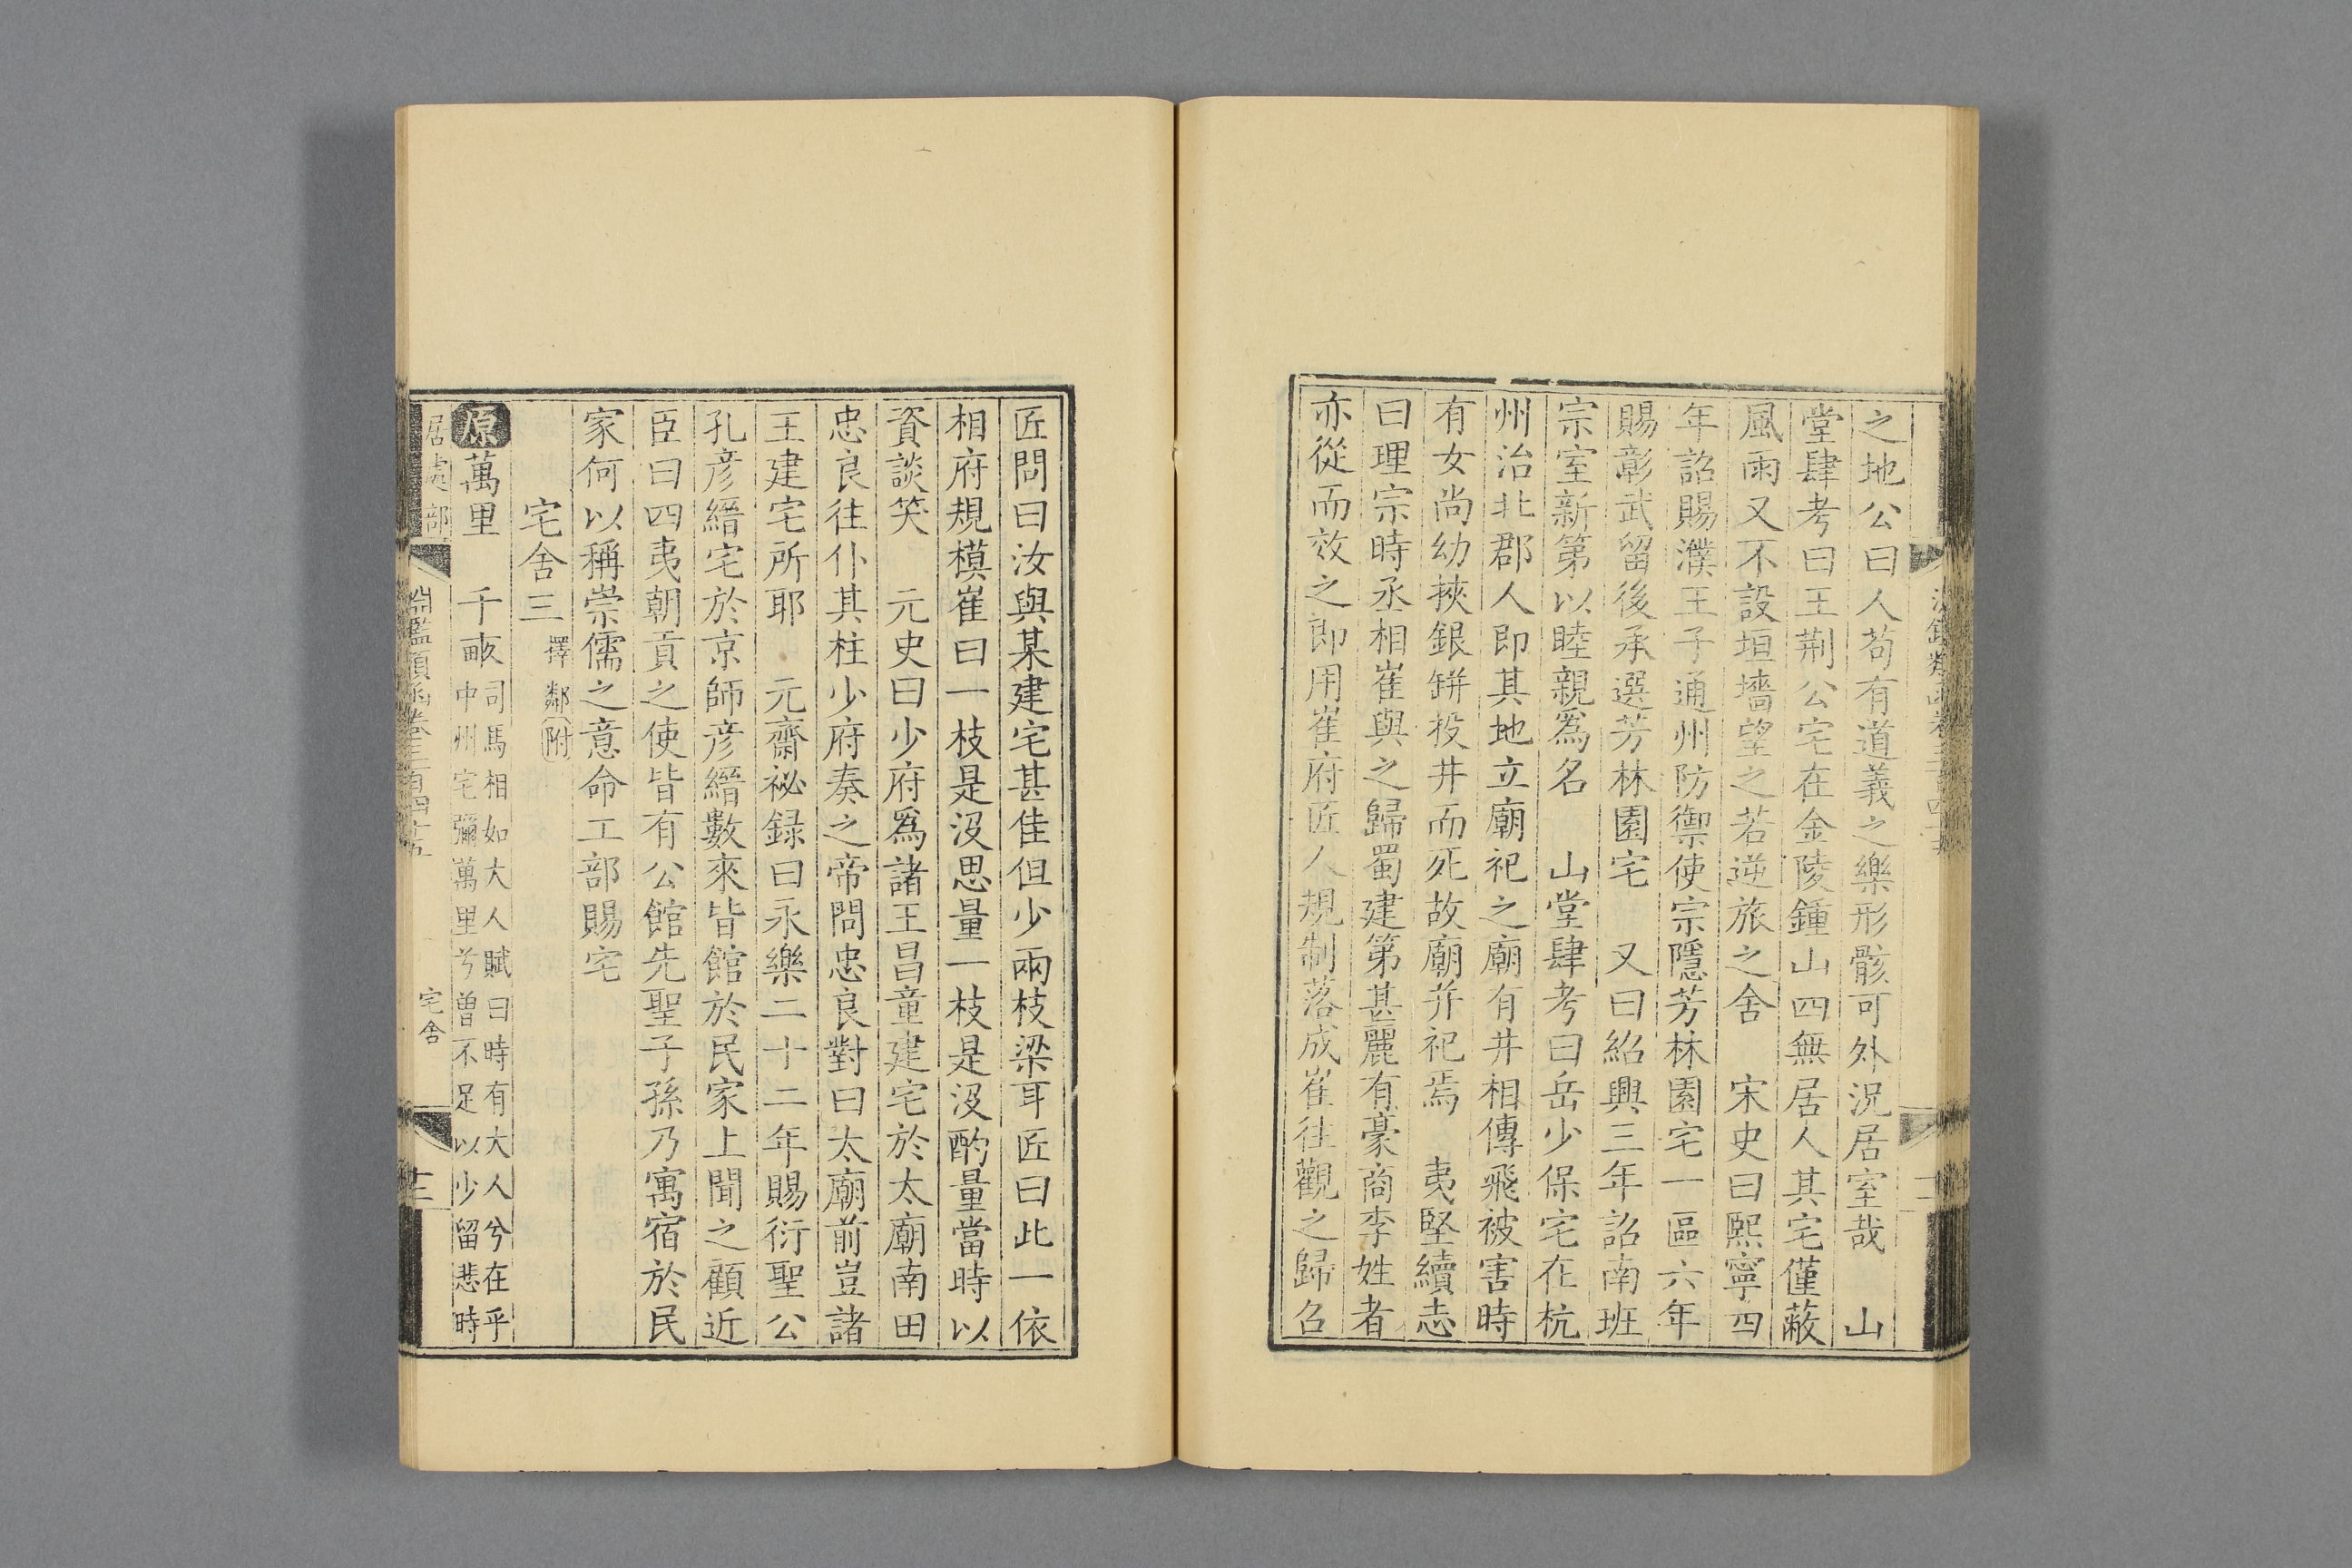 之地公曰人苟有道義之樂形骸可外況居室哉　山
堂肆考曰王荆公宅在金陵鍾山四無居人其宅僅蔽
風雨又不設垣墻望之若逆旅之舍　宋史曰熙寧四
年詔賜濮王子通州防禦使宗隱芳林園宅一區六年
賜彰武留後承選芳林園宅　又曰紹興三年詔南班
宗室新第以睦親爲名　山堂肆考曰岳少保宅在杭
州治北郡人即其地立廟祀之廟有井相傳飛被害時
有女尚幼挾銀缾投井而死故廟并祀焉　夷堅續志
曰理宗時丞相崔與之歸蜀建第甚麗有豪商李姓者
亦從而效之即用崔府匠人規制落成崔往觀之歸召
匠問曰汝與某建宅甚佳但少兩枝梁耳匠曰此一依
相府規模崔曰一枝是沒思量一枝是沒酌量當時以
資談笑　元史曰少府爲諸王昌童建宅於太廟南田
忠良往仆其柱少府奏之帝問忠良對曰太廟前豈諸
王建宅所耶　元齋祕録曰永樂二十二年賜衍聖公
孔彦縉宅於京師彦縉數來皆館於民家上聞之顧近
臣曰四夷朝貢之使皆有公館先聖子孫乃寓宿於民
家何以稱崇儒之意命工部賜宅
宅舍三 擇鄰附
原萬里　千畝 司馬相如大人賦曰時有大人兮在乎
中州宅彌萬里兮曾不足以少留悲時
居處部　淵鑑類函卷三百四十五　宅舍　十二